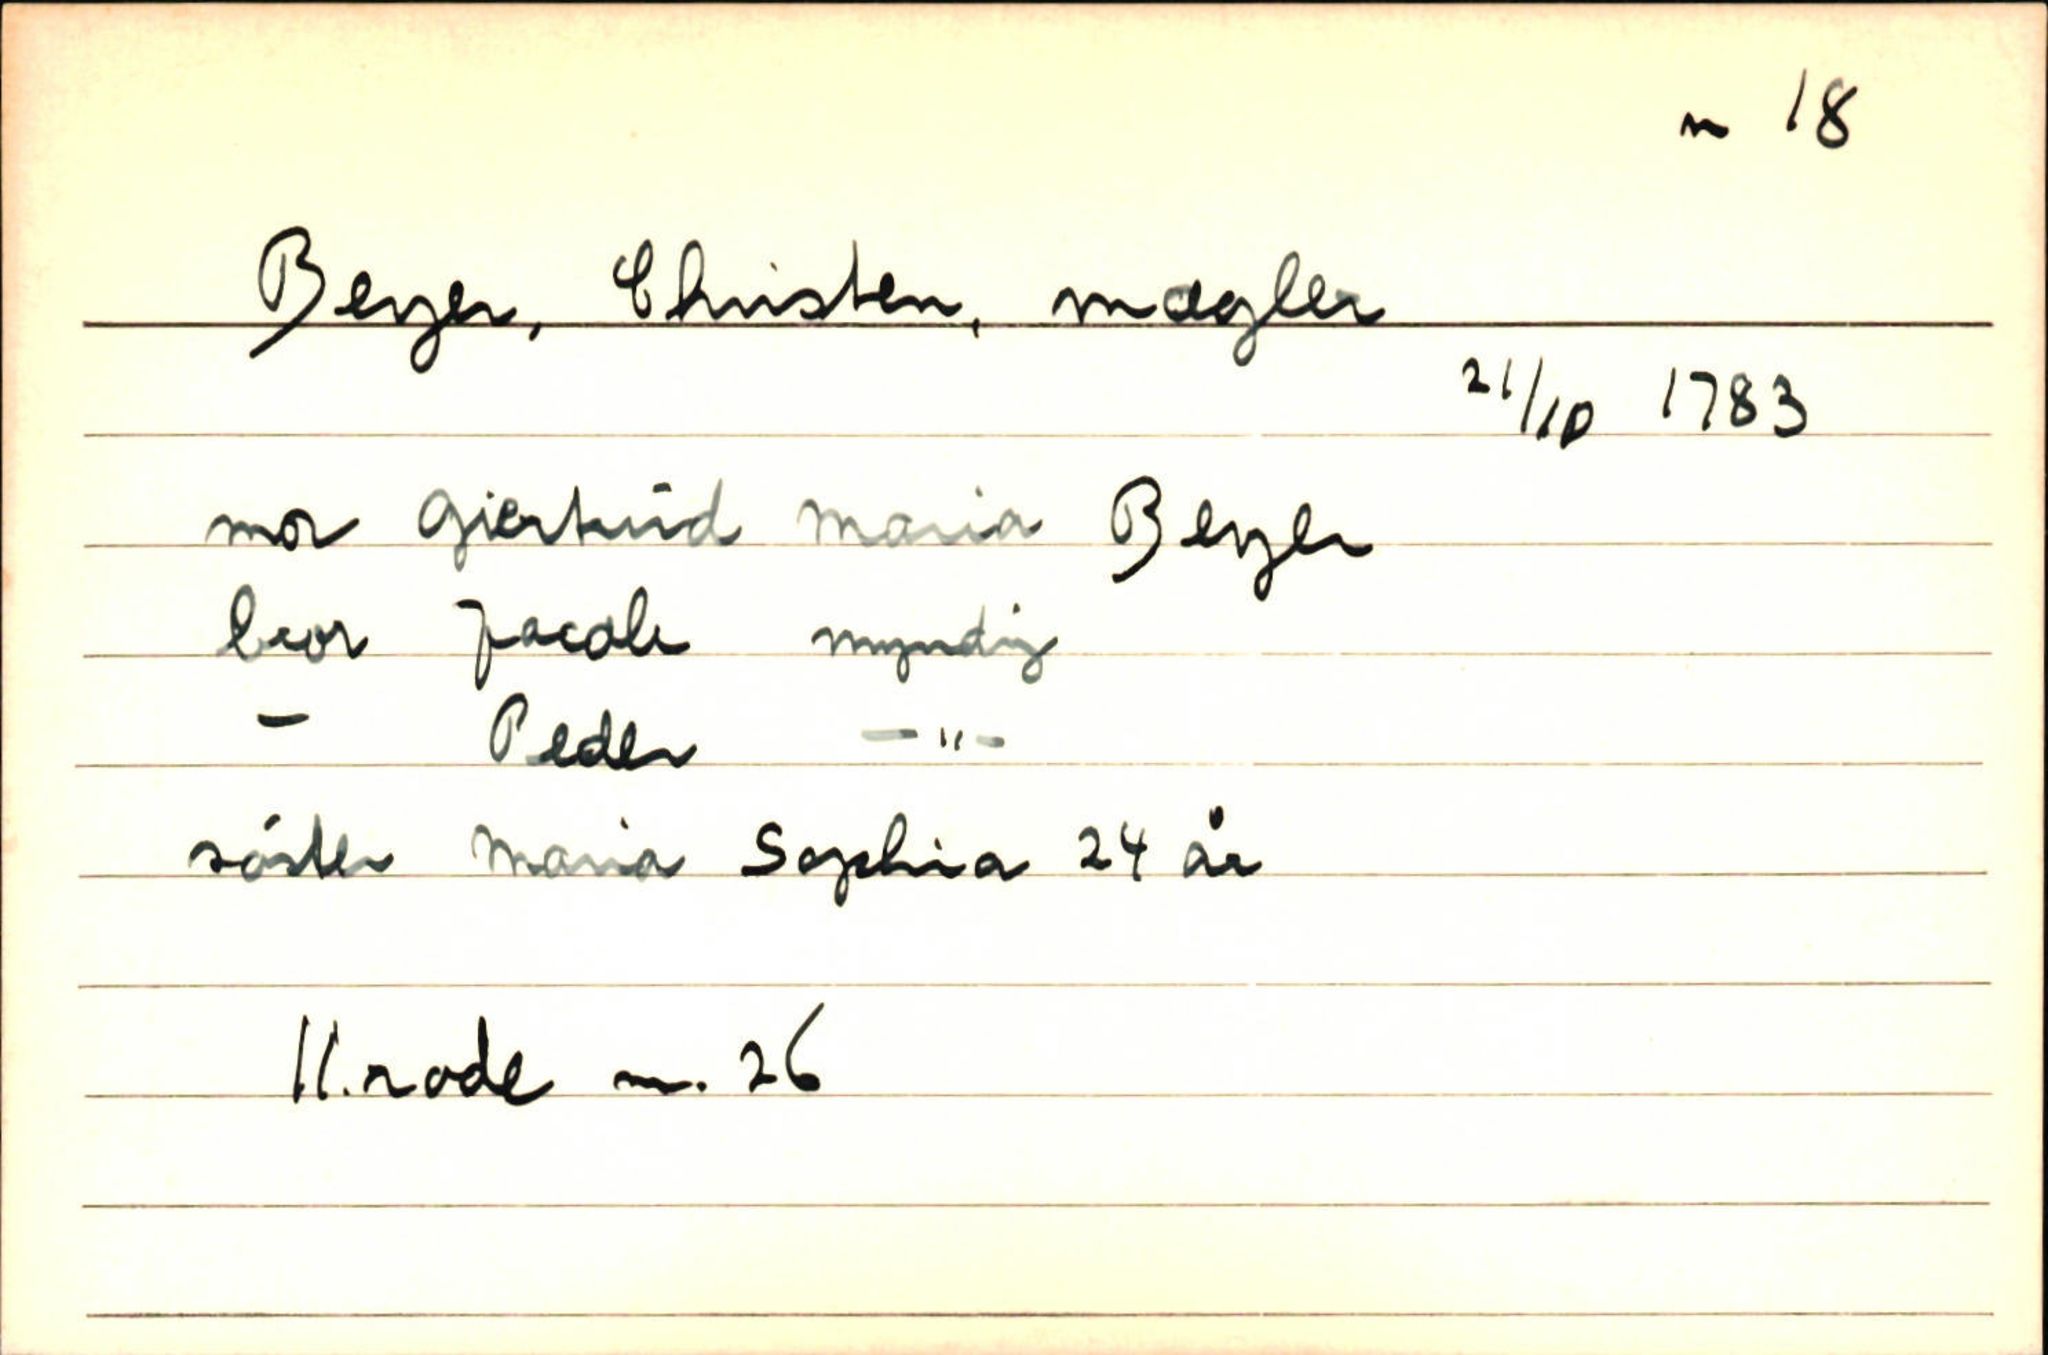 n 18
Beyer, Christen, mægler
21/10 1783
mor Giertrūd Maria Beyer
bror Jacob myndig
– Peder – " –
söster Maria Sophia 24 år
11. rode n. 26